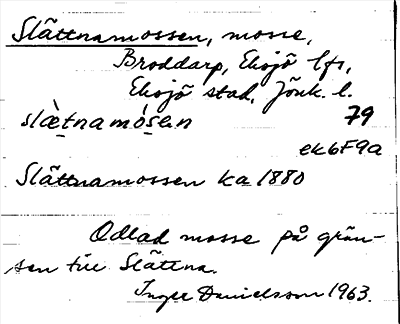 Slättnamossen, mosse,
Broddarp, Eksjö lfs,
Eksjö stad, Jönk. l.
slæ̀tnamósen 79
ek6F9a
Slättnamossen ka 1880
Odlad mosse på grän-
sen till Slättna.
Inger Danielsson 1963.